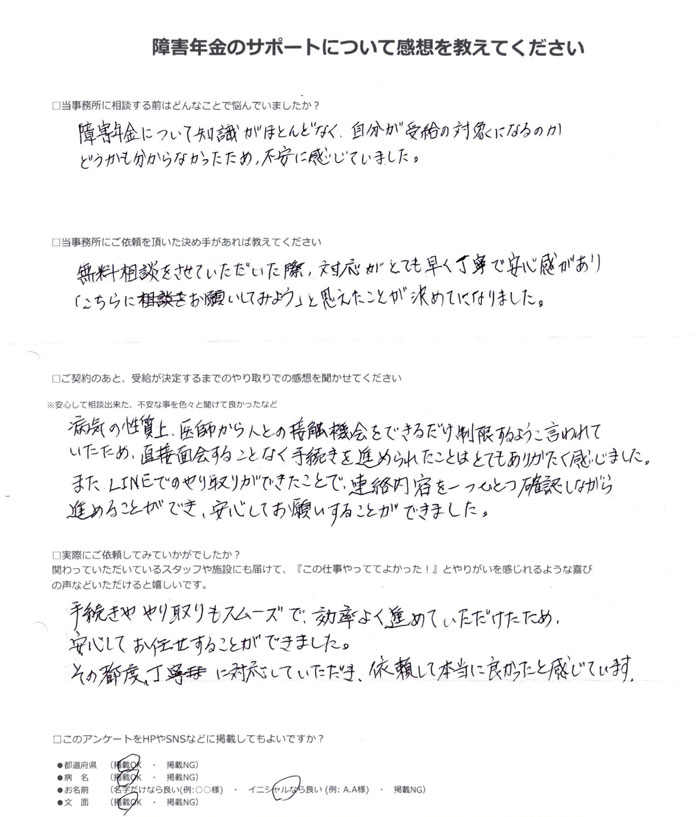 障害年金のサポートについて感想を教えてください
□当事務所に相談する前はどんなことで悩んでいましたか？
障害年金について知識がほとんどなく、自分が受給の対象になるのか
どうかも分からなかったため、不安に感じていました。
□当事務所にご依頼を頂いた決め手があれば教えてください
無料相談をさせていただいた際、対応がとても早く丁寧で安心感があり
「こちらに相談をお願いしてみよう」と思えたことが決めてになりました。
□ご契約のあと、受給が決定するまでのやり取りでの感想を聞かせてください
※安心して相談出来た、不安な事を色々と聞けて良かったなど
病気の性質上、医師から人との接触機会をできるだけ制限するように言われて
いたため、直接面会することなく手続きを進められたことはとてもありがたく感じました。
また、LINEでのやり取りができたことで、連絡内容を一つひとつ確認しながら
進めることができ、安心してお願いすることができました。
□実際にご依頼してみていかがでしたか？
関わっていただいているスタッフや施設にも届けて、『この仕事やっててよかった！』とやりがいを感じれるような喜び
の声などいただけると嬉しいです。
手続きややり取りもスムーズで、効率よく進めていただけたため、
安心してお任せすることができました。
その都度、丁寧に対応していただき、依頼して本当に良かったと感じています。
□このアンケートをHPやSNSなどに掲載してもよいですか？
●都道府県 （掲載OK ・ 掲載NG）
●病 名 （掲載OK ・ 掲載NG）
●お名前 （名字だけなら良い(例:○○様) ・ イニシャルなら良い (例: A.A様) ・ 掲載NG）
●文 面 （掲載OK ・ 掲載NG）